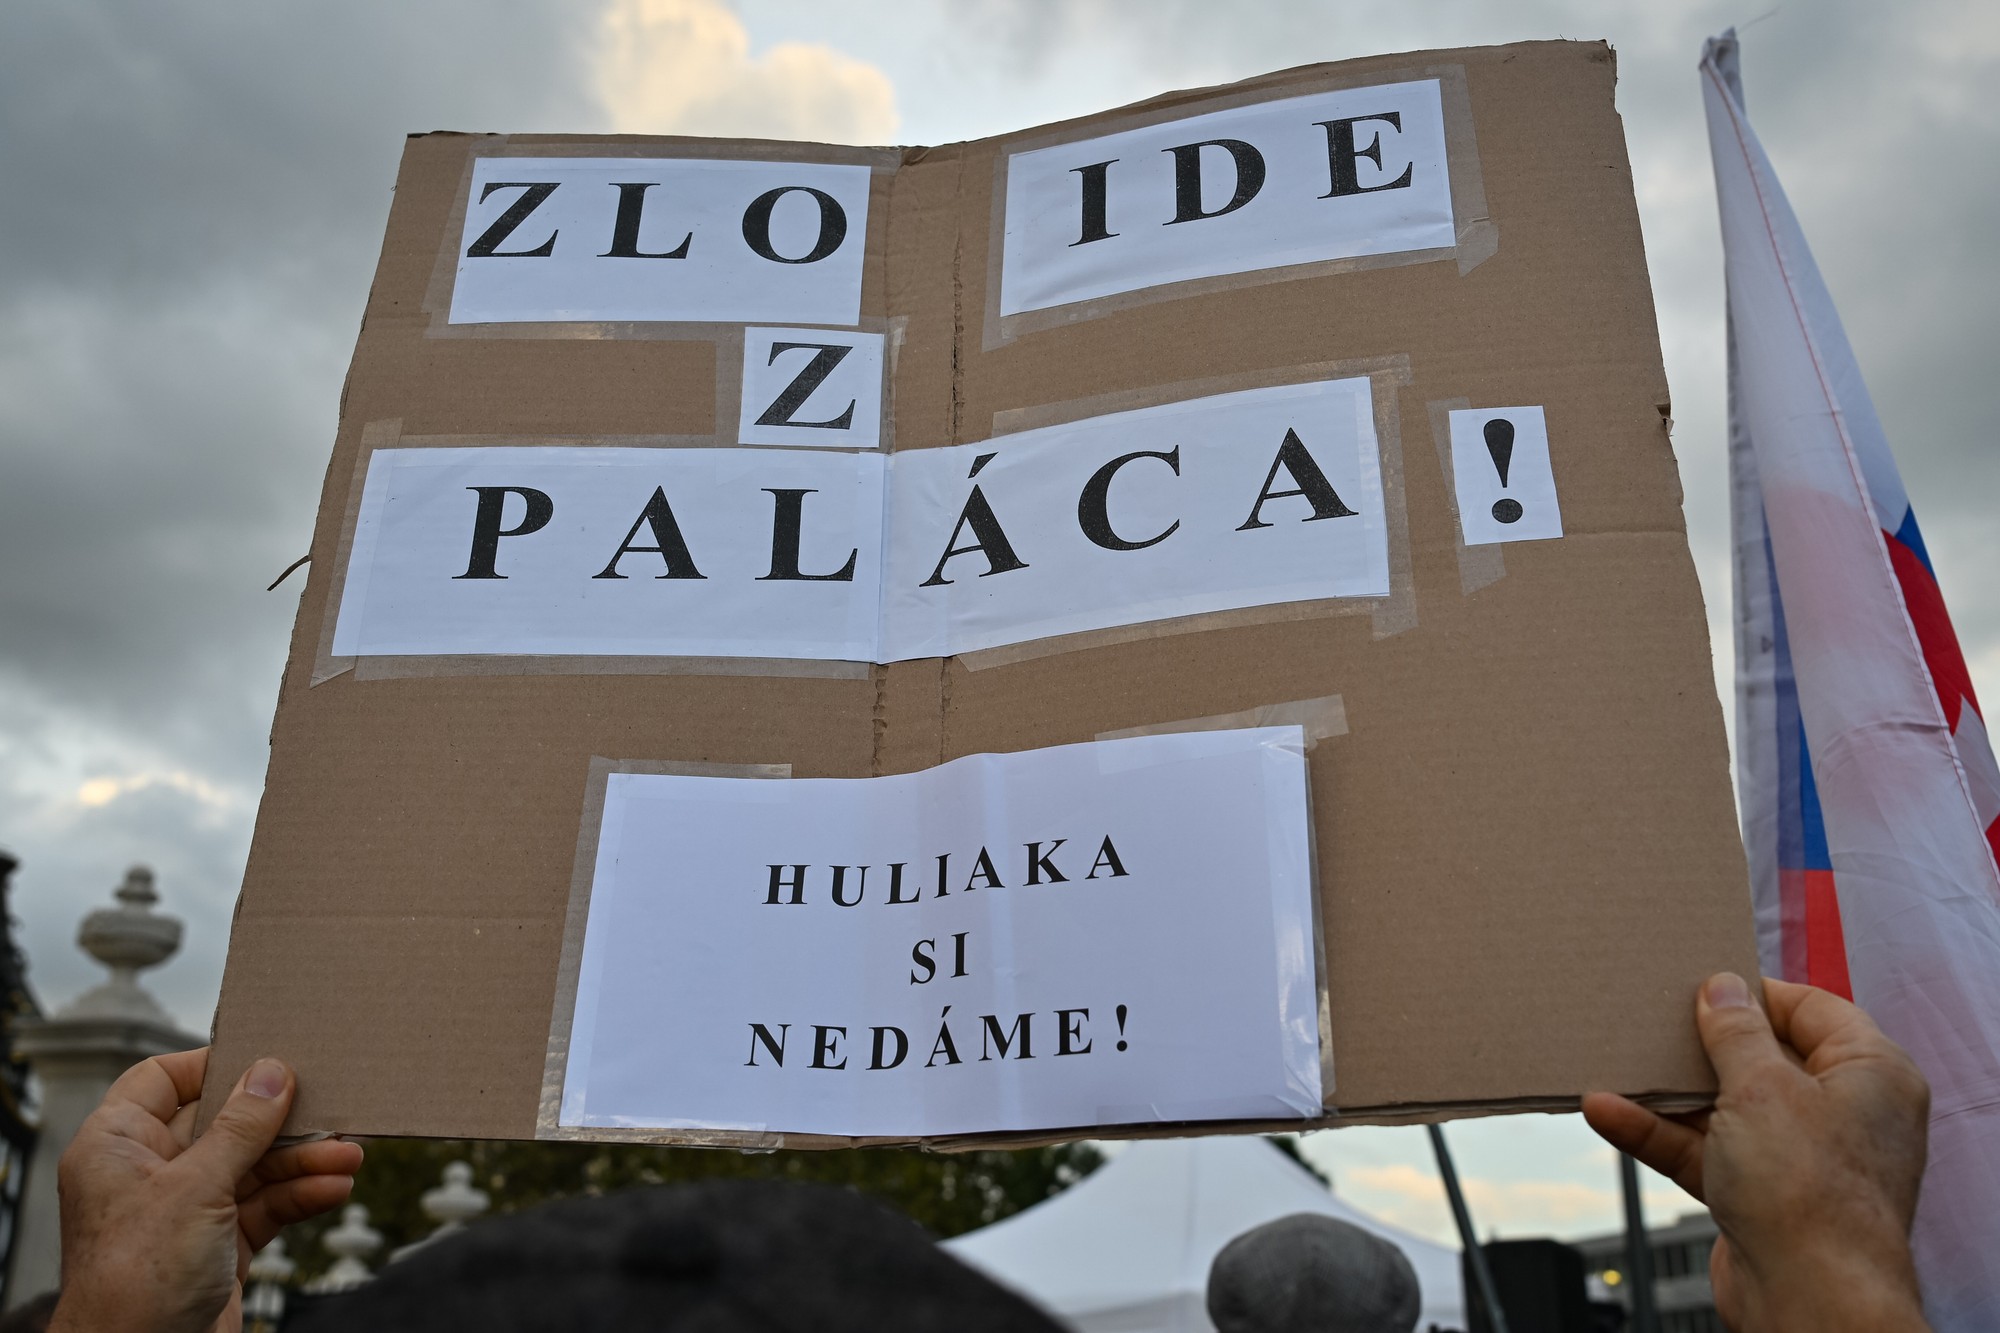 ZLO IDE
Z
PALÁCA !
HULIAKA
SI
NEDÁME!